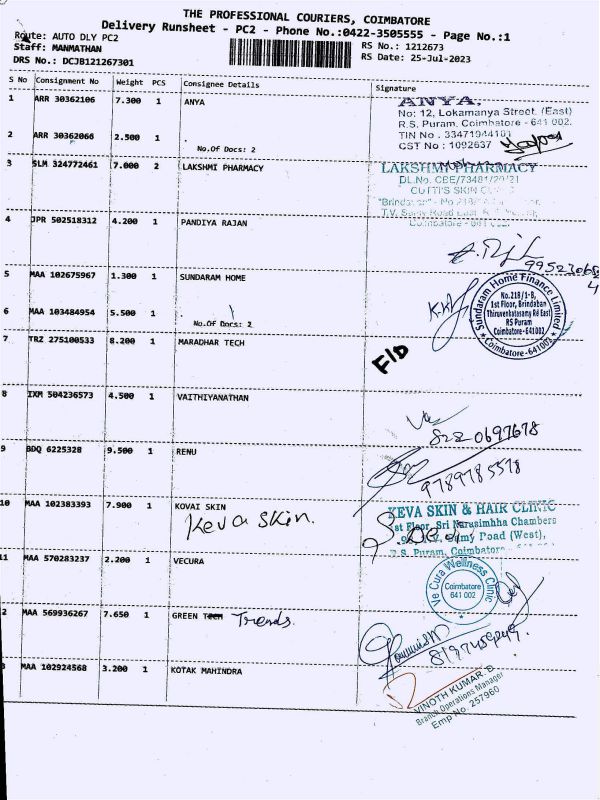 THE PROFESSIONAL COURIERS, COIMBATORE
Delivery Runsheet - PC2 - Phone No.:0422-3505555 - Page No.:1
Route: AUTO DLY PC2
Staff: MANMATHAN
DRS No.: DCJB121267301
RS No.: 1212673
RS Date: 25-Jul-2023
S No Consignment No Weight PCS Consignee Details Signature
1 ARR 30362106 7.300 1 ANYA
ANYA,
No: 12, Lokamanya Street. (East)
R.S. Puram, Coimbatore - 641 002.
TIN No : 33471944101
CST No : 1092637
2 ARR 30362066 2.500 1
No.Of Docs: 2
3 SLM 324772461 7.000 2 LAKSHMI PHARMACY
LAKSHMI PHARMACY
DL.No. CBE/73481/20/21
CUTTI'S SKIN
"Brindavan" - No
Coimbatore - 641 002.
4 JPR 502518312 4.200 1 PANDIYA RAJAN
5 MAA 102675967 1.300 1 SUNDARAM HOME
Sundaram Home Finance Limited
No.218/1-B,
1st Floor, Brindaban
Thiruvenkatasamy Rd East
RS Puram
Coimbatore-641002
Coimbatore-641002
6 MAA 103484954 5.500 1
No.Of Docs: 2
7 TRZ 275100533 8.200 1 MARADHAR TECH
F/D
8 IXM 504236573 4.500 1 VAITHIYANATHAN
822 0697678
9 BDQ 6225328 9.500 1 RENU
9789785578
10 MAA 102383393 7.900 1 KOVAI SKIN
Keva Skin.
KEVA SKIN & HAIR CLINIC
1st Floor, Sri Narasimhha Chambers
Road (West),
R.S. Puram, Coimbatore
11 MAA 570283237 2.200 1 VECURA
Ve Cura Wellness Clinic
Coimbatore
641 002
2 MAA 569936267 7.650 1 GREEN Trends.
8197459249
3 MAA 102924568 3.200 1 KOTAK MAHINDRA
VINOTH KUMAR. D
Branch Operations Manager
Emp No. 257960